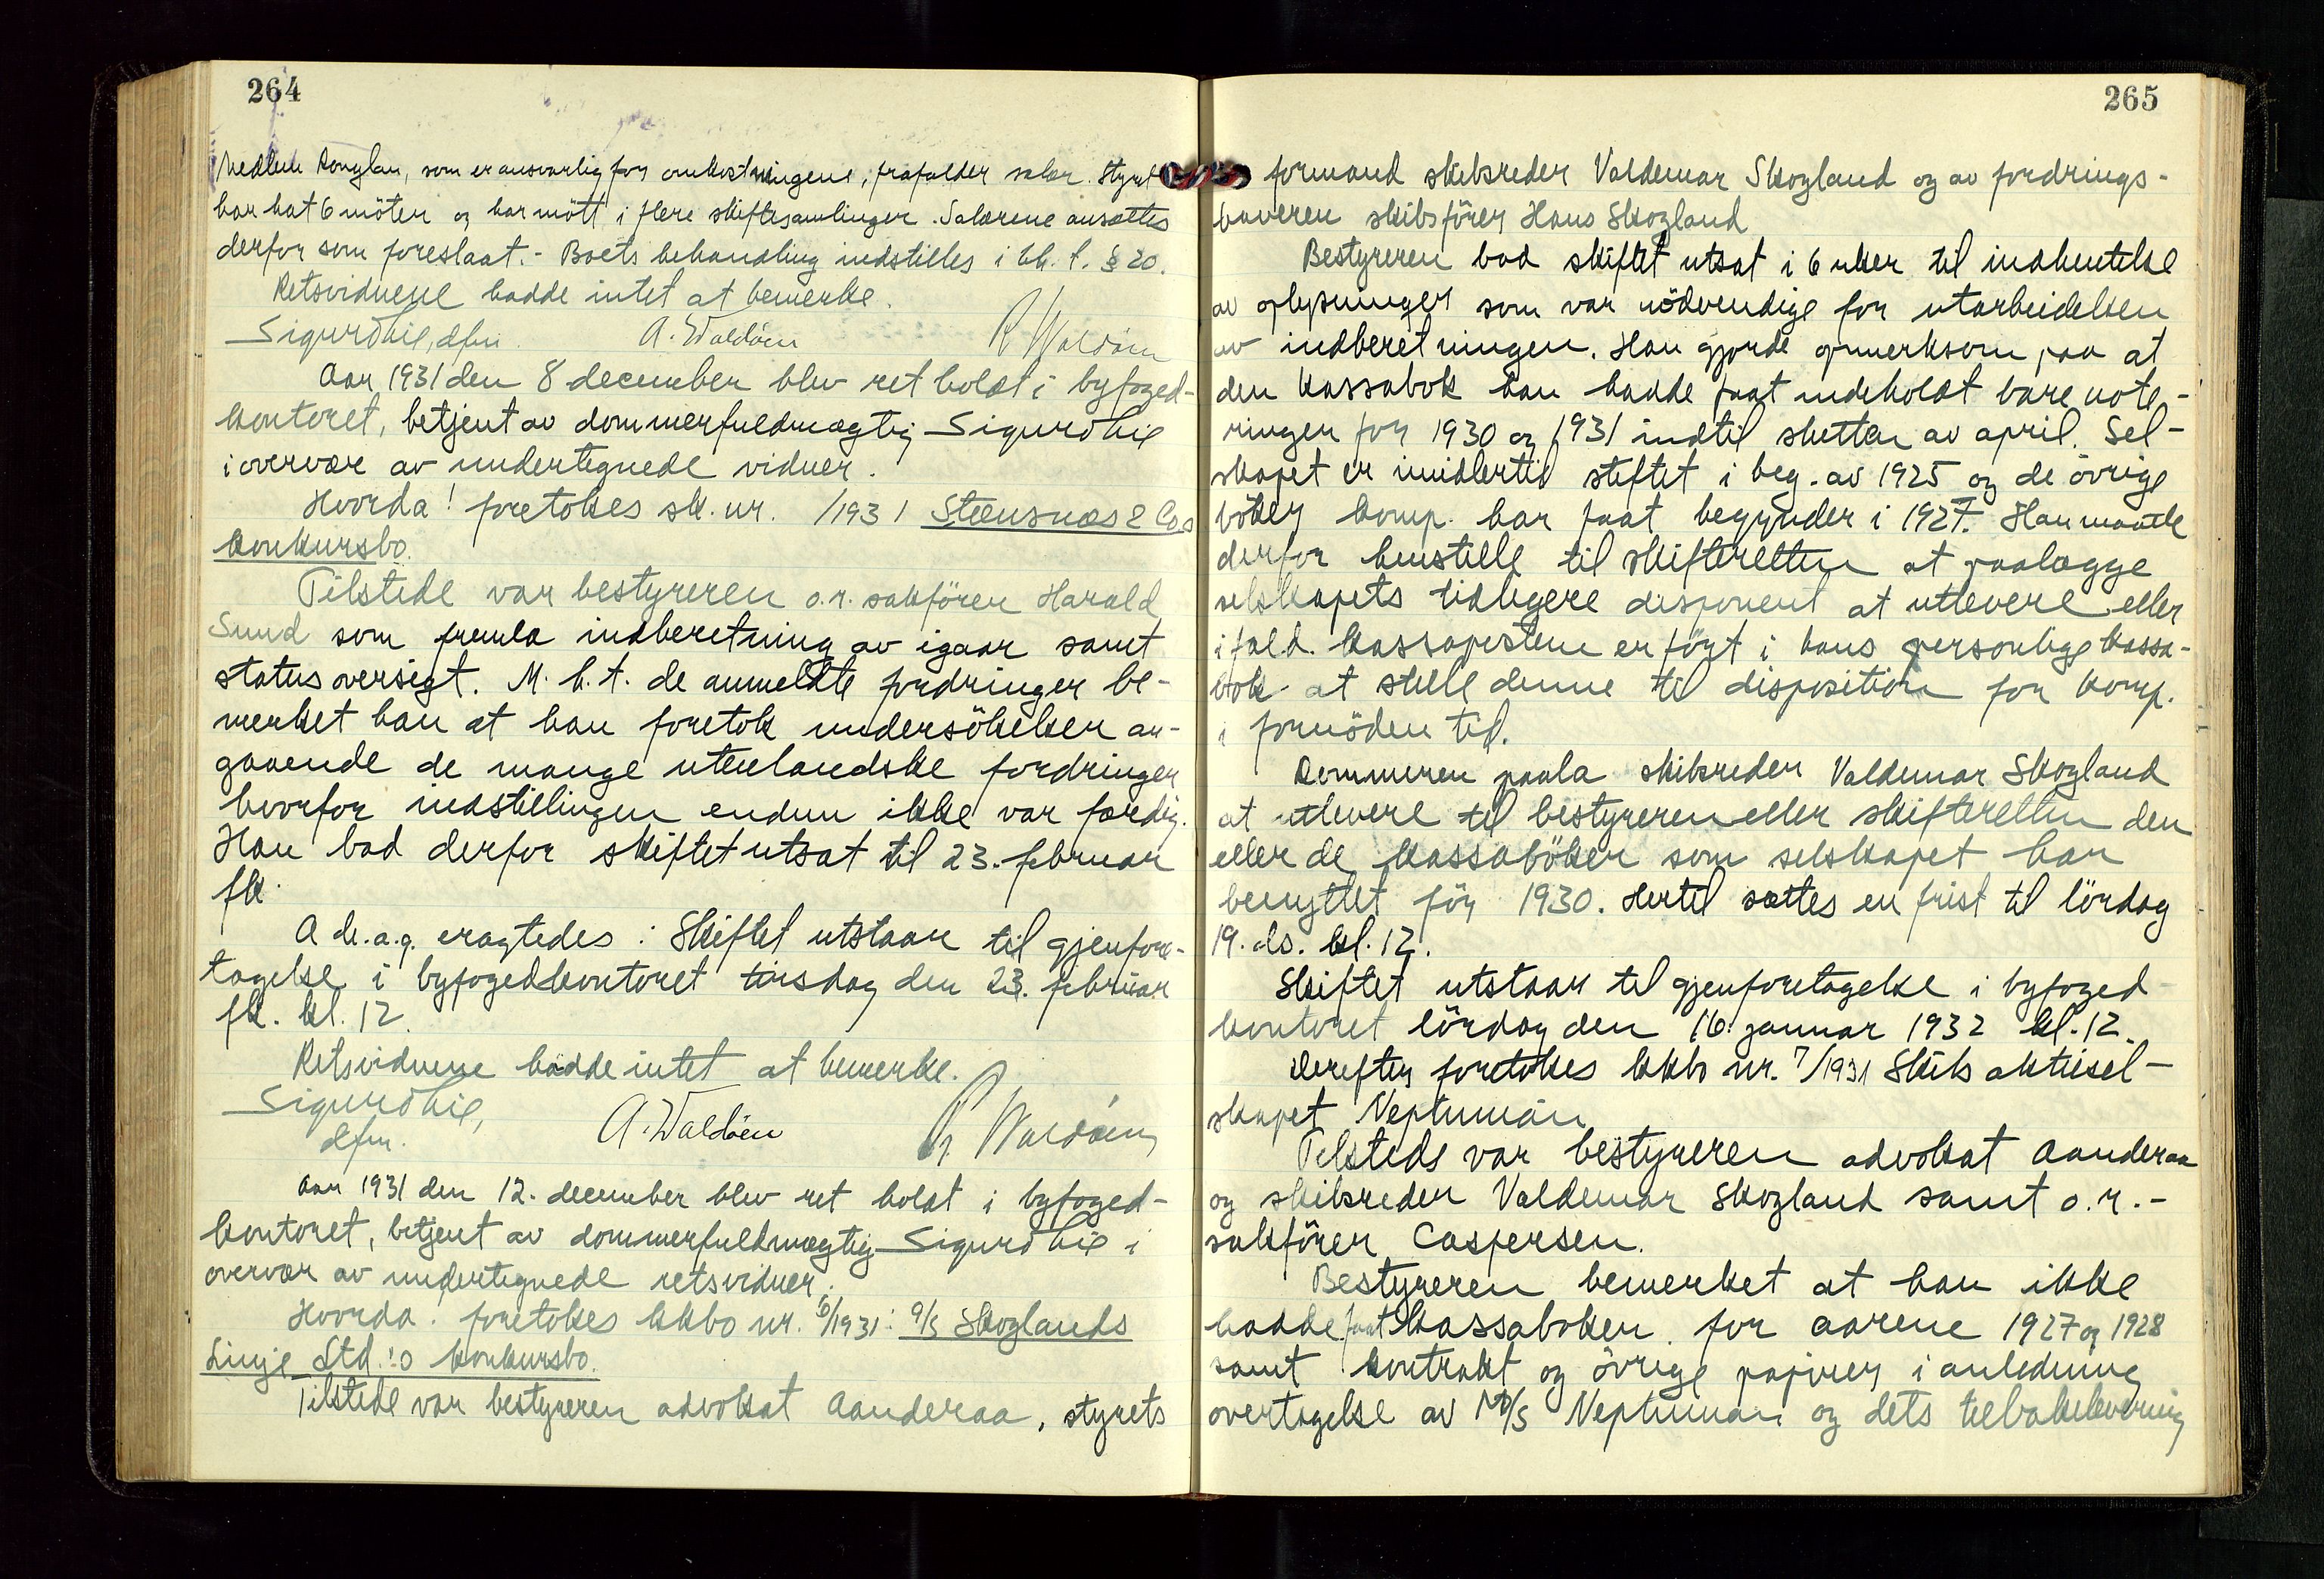 264
Medlem Konglan, som er ansvarlig for omkostningene, frafalder salær. Styret
har hat 6 möter og har mött i flere skiftesamlinger. Salærene ansættes
derfor som foreslaat.- Boets behandling indstilles i hh. t. § 20.
Retsvidnene hadde intet at bemerke.
Sigurd Lie, dfm. A. Waldöen R Waldöen
Aar 1931 den 8 december blev ret holdt i byfoged-
kontoret, betjent av dommerfuldmægtig Sigurd Lie
i overvær av undertegnede vidner.
Hvorda! foretokes sk. nr. /1931 Stensnæs & Co.s
konkursbo.
Tilstede var bestyreren o.r. sakförer Harald
Sund som fremla indberetning av igaar samt
statusoversigt. M. h. t. de anmeldte fordringer be-
merket han at han foretok undersökelser an-
gaaende de mange utenlandske fordringer
hvorfor indstillingen endnu ikke var færdig.
Han bad derfor skiftet utsat til 23. februar
fk.
A de.a.g. eragtedes: Skiftet utstaar til gjenfore-
tagelse i byfogedkontoret tirsdag den 23. februar
fk. kl. 12.
Retsvidnene hadde intet at bemerke.
Sigurd Lie,
dfm. A. Waldöen R Waldöen
Aar 1931 den 12. december blev ret holdt i byfoged-
kontoret, betjent av dommerfuldmægtig Sigurd Lie i
overvær av undertegnede retsvidner.
Hvorda! foretokes kkbo nr. 6/1931: a/s Skoglands
Linje Ltd.'s konkursbo.
Tilstede var bestyreren advokat Aanderaa, styrets
265
formand skibsreder Valdemar Skogland og av fordrings-
haveren skibsförer Hans Skogland
Bestyreren bad skiftet utsat i 6 uker til indhentelse
av oplysninger som var nödvendige for utarbeidelsen
av indberetningen. Han gjorde opmerksom paa at
den kassabok han hadde faat indeholdt bare note-
ringer for 1930 og 1931 indtil slutten av april. Sel-
skapet er imidlertid stiftet i beg. av 1925 og de övrige
böker komp. har faat begynder i 1927. Han maatte
derfor henstille til skifteretten at paalægge
selskapets tidligere disponent at utlevere eller
ifald kassapostene er fört i hans personlige kassa-
bok at stille denne til disposition for komp.
i fornöden tid.
Dommeren paala skibsreder Valdemar Skogland
at utlevere til bestyreren eller skifteretten den
eller de kassaböker som selskapet har
benyttet för 1930. Hertil sættes en frist til lördag
19. ds. kl. 12.
Skiftet utstaar til gjenforetagelse i byfoged-
kontoret lördag den 16. januar 1932 kl. 12.
Derefter foretokes kkbo nr. 7/1931 Skibsaktiesel-
skapet Neptunian
Tilstede var bestyreren advokat Aanderaa
og skibsreder Valdemar Skogland samt o.r.-
sakförer Caspersen.
Bestyreren bemerket at han ikke
hadde faat kassaboken for aarene 1927 og 1928
samt kontrakt og övrige papirer i anledning
overtagelse av M/S Neptunian og dets tilbakelevering